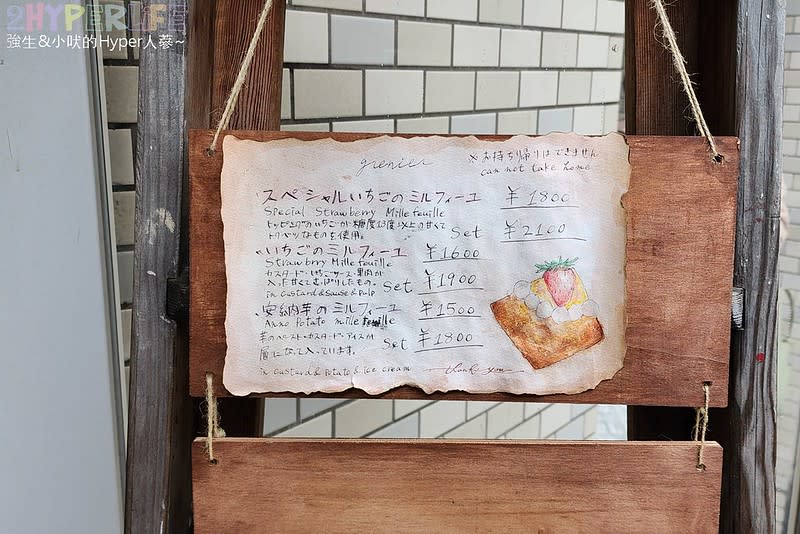 2HYPERLIFE
強生&小吠的Hyper人蔘~
grenier
※お持ち帰りはできません
can not take home
スペシャルいちごのミルフィーユ ¥1800
Special Strawberry Mille feuille
トッピングのいちごが糖度13度以上の甘くて
なものを使用。 Set ¥2100
いちごのミルフィーユ ¥1600
Strawbrry Mille feuille
カスタード・いちごソース・果肉が
入った甘くてさっぱりしたもの。 Set ¥1900
in Custard & Sause & Pulp
安納芋のミルフィーユ ¥1500
Anno Potato mille feuille
芋のペースト・カスタード・アイスが
層になって入っています。 Set ¥1800
in custard & potato & ice cream
thank you